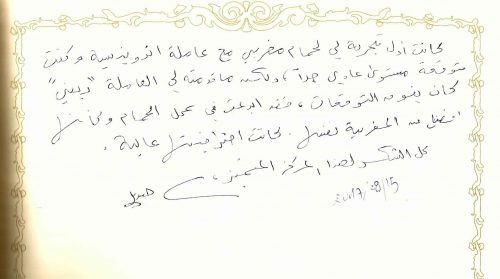 كانت أول تجربة لي لحمام مغربي مع عاملة اندونيسية وكنت
متوقعة مستوى عادي جداً، ولكن ماقدمته لي العاملة "ديني"
كان يفوق التوقعات، فقد ابدعت في عمل الحمام وكأنها
افضل من المغربية نفسها. كانت احترافيتها عالية.
كل الشكر لهذا المركز المتميز،
2017/08/15